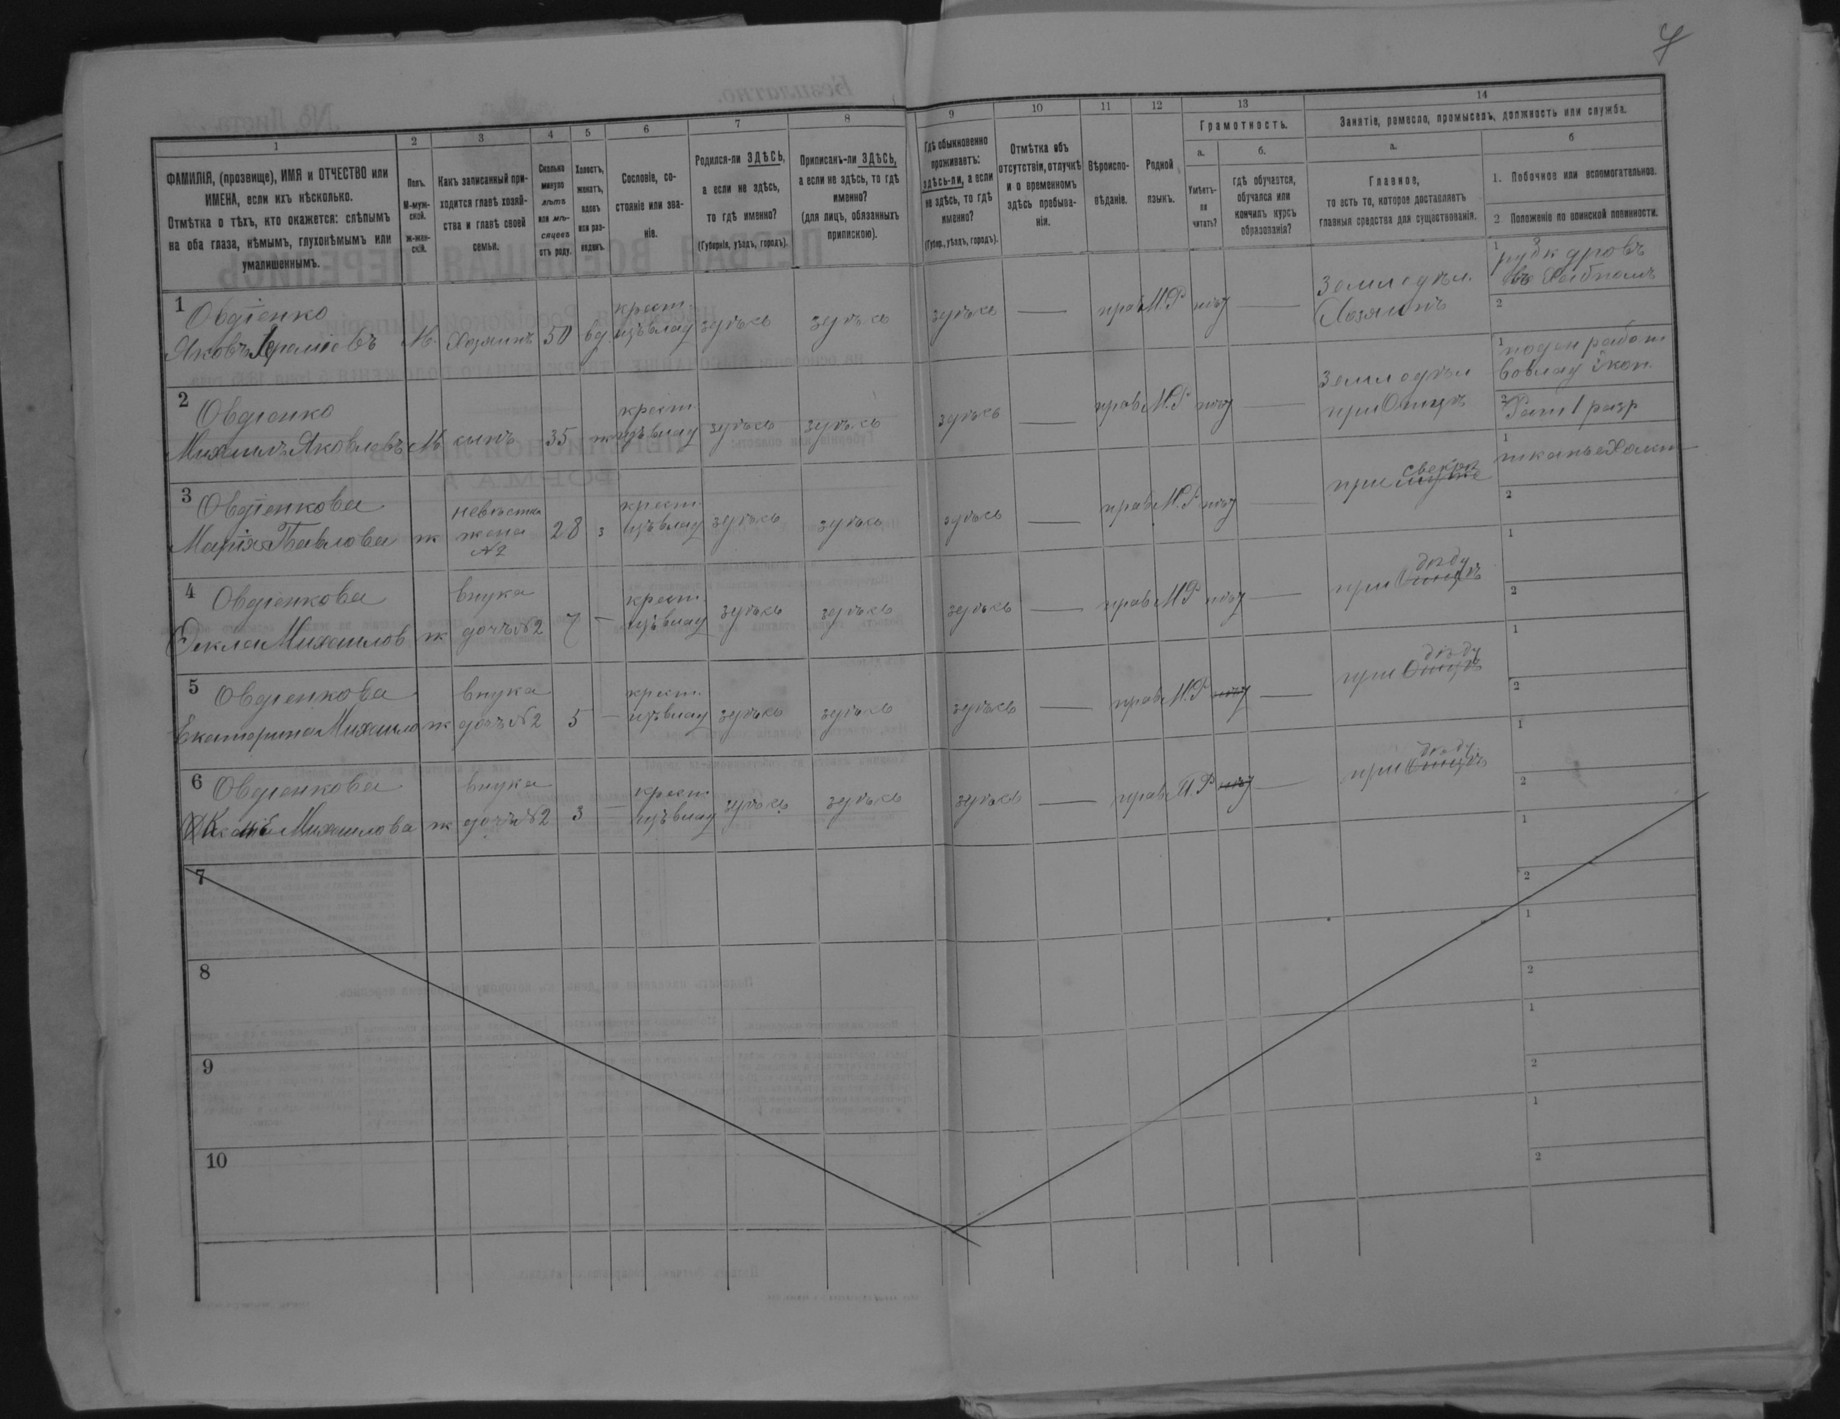 7
1
2
3
4
5
6
7
8
9
10
11
12
13
14
ФАМИЛІЯ, (прозвище), ИМЯ и ОТЧЕСТВО или
ИМЕНА, если ихъ нѣсколько.
Отмѣтка о тѣхъ, кто окажется: слѣпымъ
на оба глаза, нѣмымъ, глухонѣмымъ или
умалишеннымъ.
Полъ.
М-муж-
ской.
ж-жен-
скій.
Какъ записанный при-
ходится главѣ хозяй-
ства и главѣ своей
семьи.
Сколько
минуло
лѣтъ
или мѣ-
сяцевъ
отъ роду.
Холостъ,
женатъ,
вдовъ
или раз-
веденъ.
Сословіе, со-
стояніе или зва-
ніе.
Родился-ли ЗДѢСЬ,
а если не здѣсь,
то гдѣ именно?
(Губернія, уѣздъ, городъ).
Приписанъ-ли ЗДѢСЬ,
а если не здѣсь, то гдѣ
именно?
(для лицъ, обязанныхъ
припискою).
Гдѣ обыкновенно
проживаетъ:
здѣсь-ли, а если
не здѣсь, то гдѣ
именно?
(Губер., уѣздъ, городъ).
Отмѣтка объ
отсутствіи, отлучкѣ
и о временномъ
здѣсь пребыва-
ніи.
Вѣроиспо-
вѣданіе.
Родной
языкъ.
Грамотность.
а.
Умѣетъ-
ли
читать?
б.
гдѣ обучается,
обучался или
кончилъ курсъ
образованія?
Занятіе, ремесло, промыселъ, должность или служба.
а.
Главное,
то есть то, которое доставляетъ
главныя средства для существованія.
б
1. Побочное или вспомогательное.
2. Положеніе по воинской повинности.
1
Овдіенко
Яковъ
М. Хозяинъ 50 вд
крест.
изъ влад
здѣсь здѣсь здѣсь — прав М.Р нѣт —
Земледѣл.
Хозяинъ
1
дровъ
2
2
Овдіенко
Михаилъ Яковлевъ М сынъ 35 ж
крест.
изъ влад
здѣсь здѣсь здѣсь — прав М.Р нѣт —
Земледѣл
при Отцѣ
1 поден работ
2 Рат 1 разр
3
Овдіенкова
Марія Павлова ж
невѣстка
жена
№2
28 з
крест
изъ влад
здѣсь здѣсь здѣсь — прав М.Р нѣт —
свекрѣ
при мужѣ
1
2
4
Овдіенкова
Фекла Михаилов ж
внука
дочь №2
7 —
крест
изъ влад
здѣсь здѣсь здѣсь — прав М.Р нѣт —
дѣду
при Отцѣ
1
2
5
Овдіенкова
Екатерина Михаило ж
внука
дочь №2
5 —
крест.
изъ влад
здѣсь здѣсь здѣсь — прав М.Р нѣт —
дѣду
при Отцѣ
1
2
6
Овдіенкова
Михаилова ж
внука
дочь №2
3 —
крест.
изъ влад
здѣсь здѣсь здѣсь — прав М.Р нѣт —
дѣду
при Отцѣ
1
2
7
1
2
8
1
2
9
1
2
10
1
2